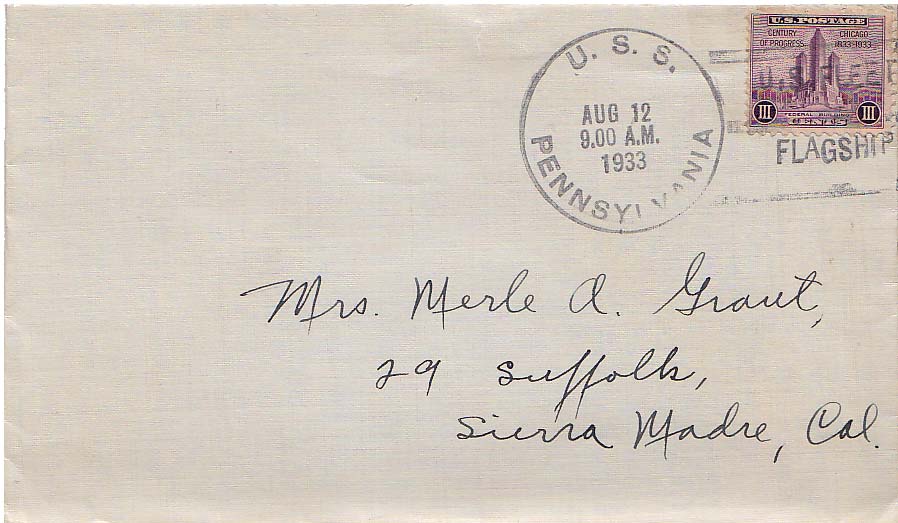 U.S. POSTAGE
CENTURY OF PROGRESS
CHICAGO 1833-1933
FEDERAL BUILDING
III CENTS III
U. S. S.
AUG 12
9.00 A.M.
1933
PENNSYLVANIA
U.S. FLEET
FLAGSHIP
Mrs. Merle A. Grout,
29 Suffolk,
Sierra Madre, Cal.